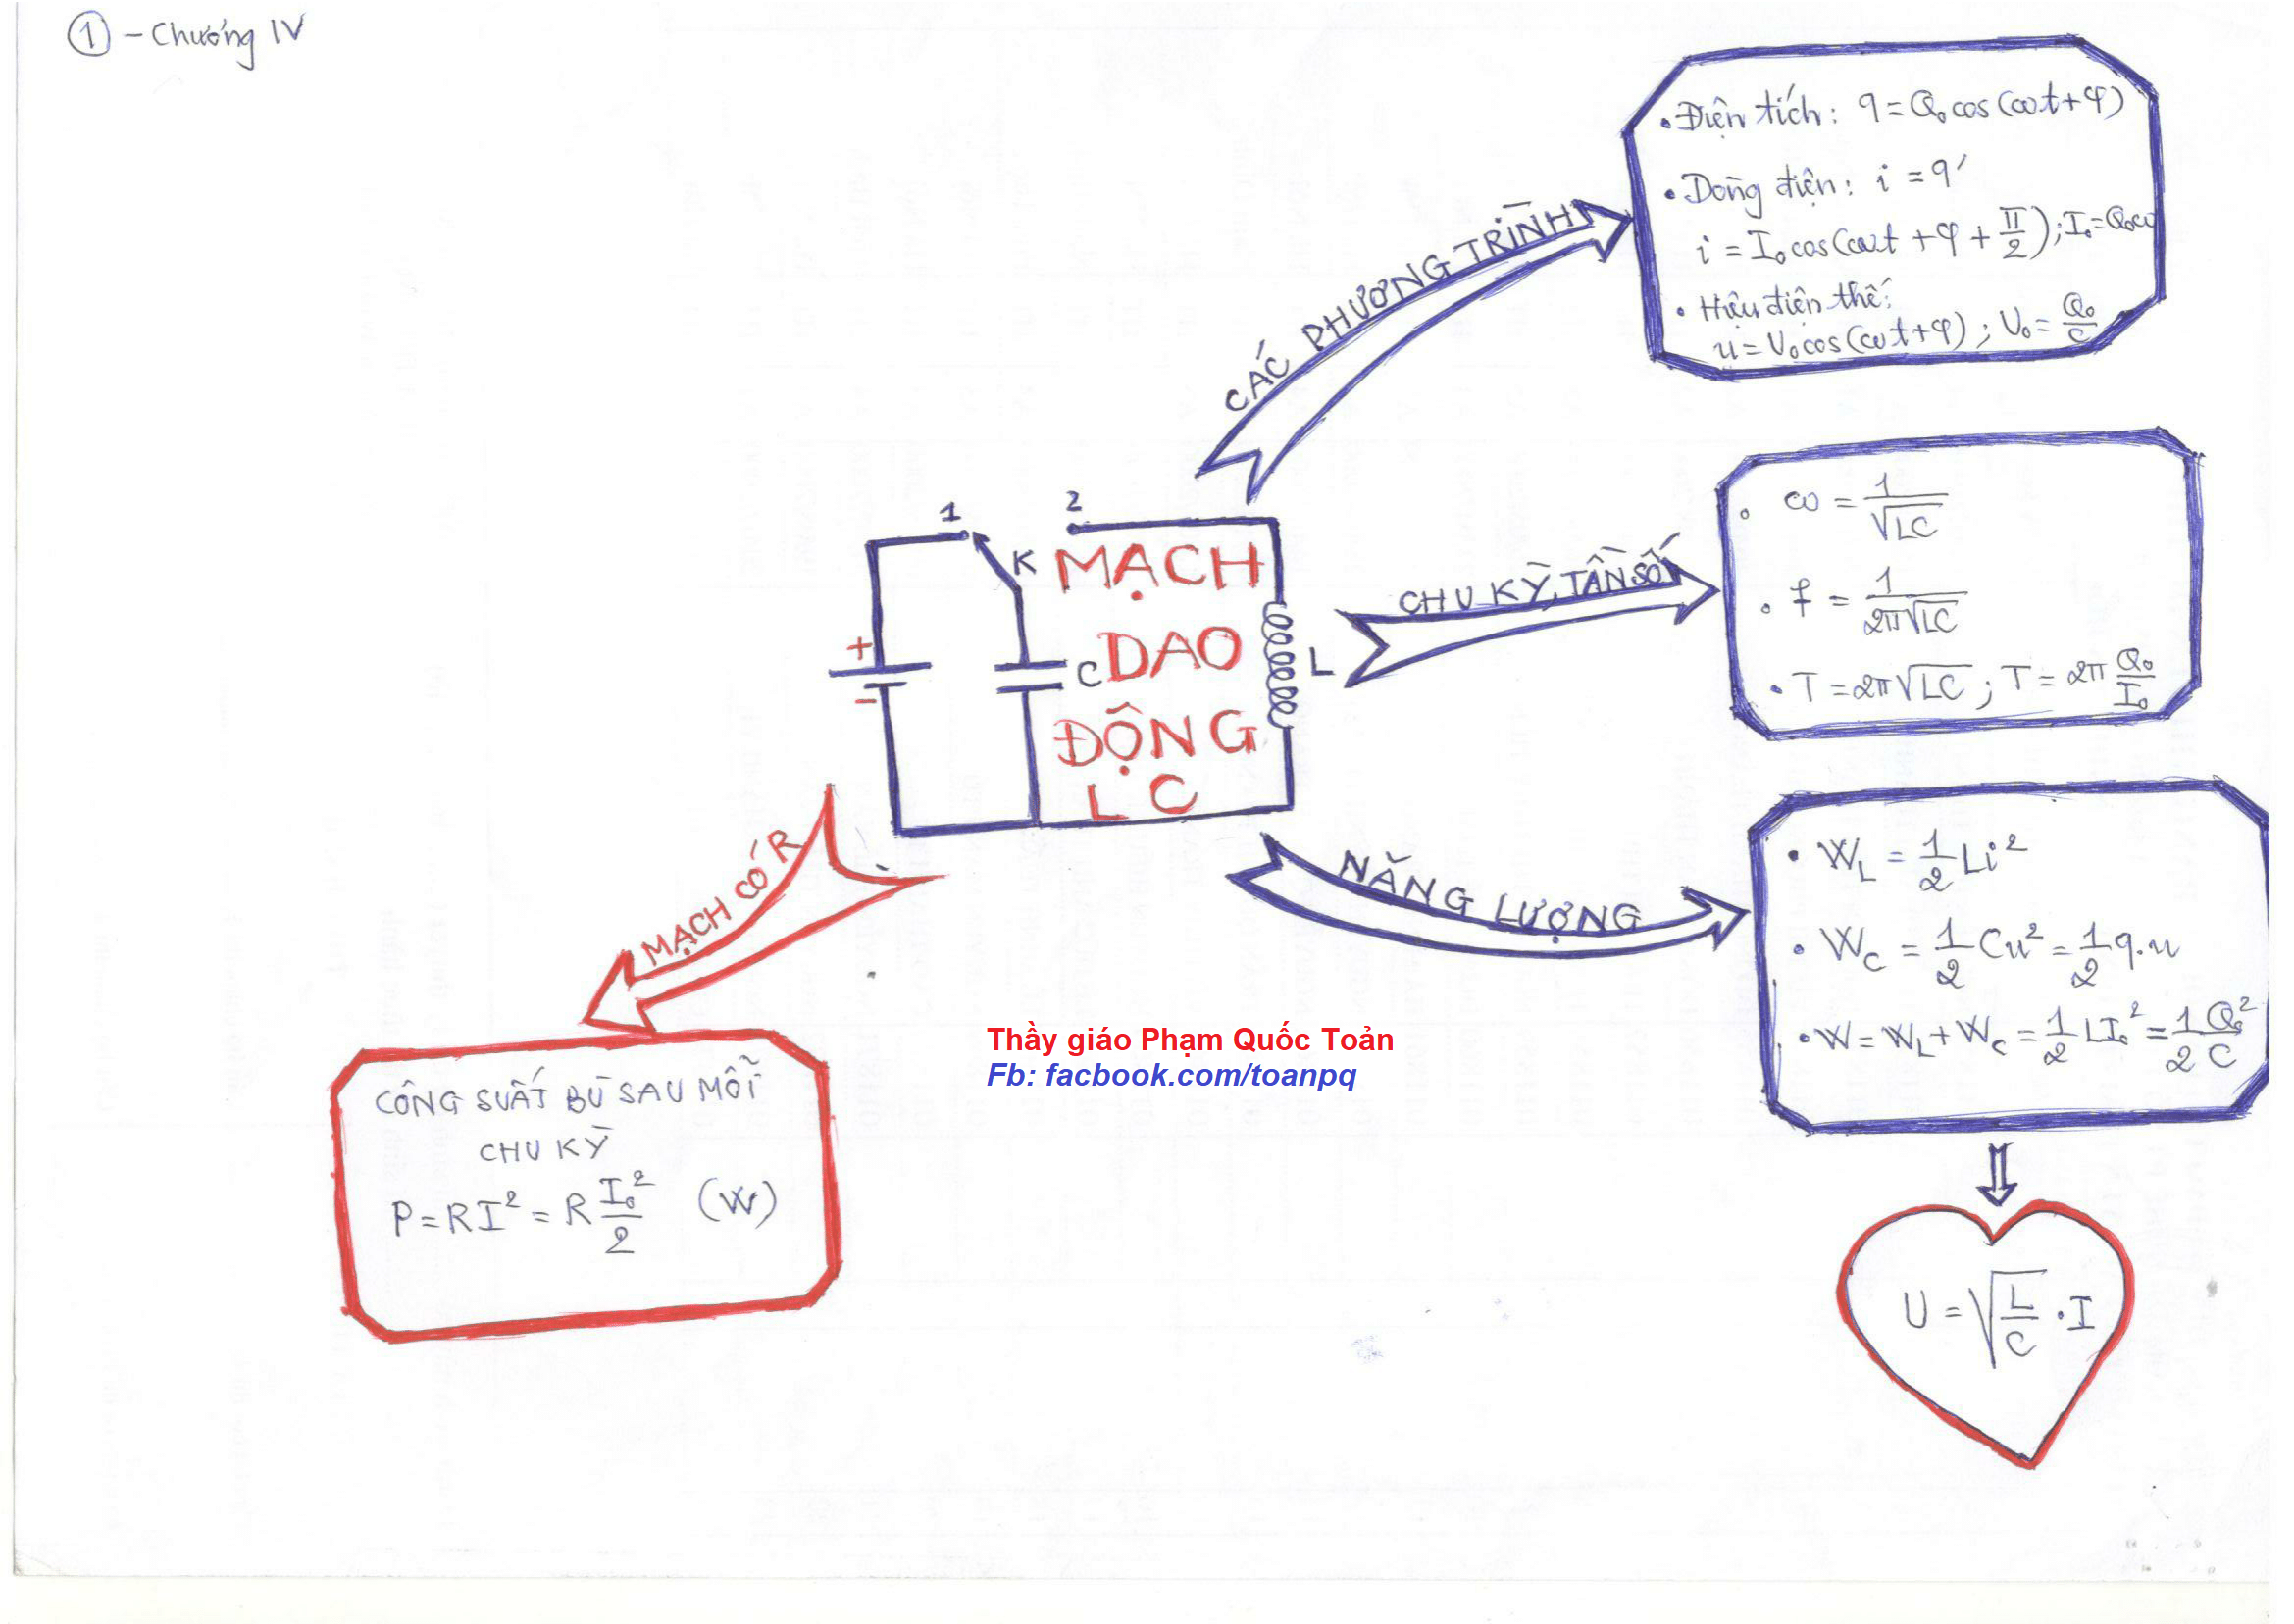 ① - Chương IV
CÁC PHƯƠNG TRÌNH
• Điện tích: q = Q₀cos(ωt+φ)
• Dòng điện: i = q'
i = I₀cos(ωt + φ + π/2); I₀ = Q₀ω
• Hiệu điện thế:
u = U₀cos(ωt+φ); U₀ = Q₀/C
CHU KỲ, TẦN SỐ
• ω = 1/√LC
• f = 1/2π√LC
• T = 2π√LC; T = 2π Q₀/I₀
1
2
K
+
-
C
L
MẠCH
DAO
ĐỘNG
LC
NĂNG LƯỢNG
• W_L = 1/2 Li²
• W_C = 1/2 Cu² = 1/2 q.u
• W = W_L + W_C = 1/2 LI₀² = 1/2 Q₀²/C
U = √(L/C) . I
MẠCH CÓ R
CÔNG SUẤT BÙ SAU MỖI
CHU KỲ
P = RI² = R I₀²/2 (W)
Thầy giáo Phạm Quốc Toản
Fb: facbook.com/toanpq